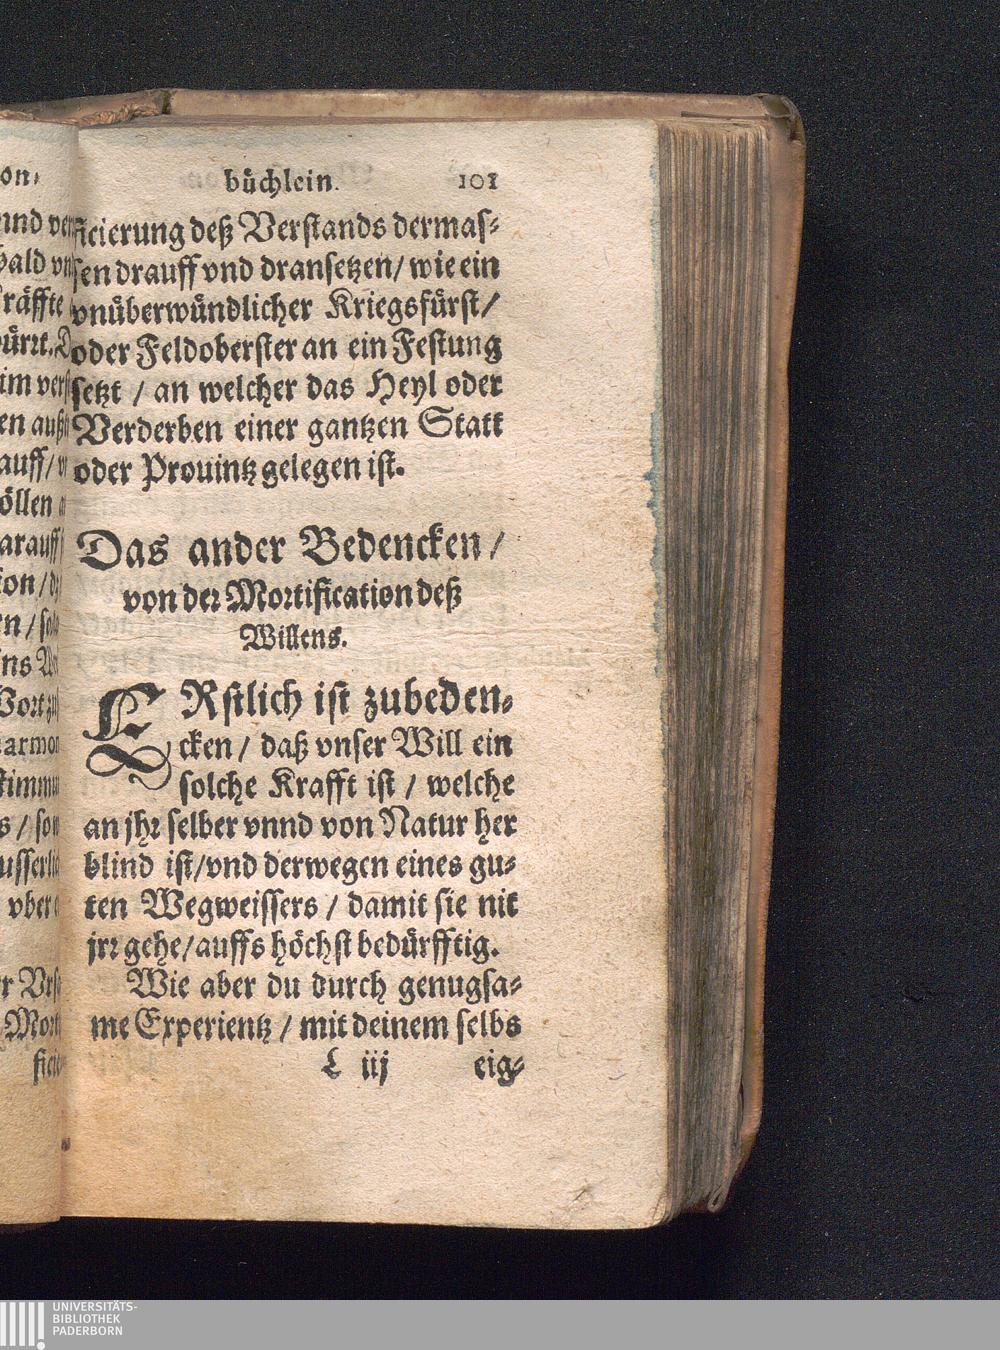 büchlein. 101
ficierung deß Verstands dermas-
sen drauff vnd dransetzen/ wie ein
vnüberwündlicher Kriegsfürst/
oder Feldoberster an ein Festung
setzt / an welcher das Heyl oder
Verderben einer gantzen Statt
oder Prouintz gelegen ist.
Das ander Bedencken /
von der Mortification deß
Willens.
ERstlich ist zubeden-
cken / daß vnser Will ein
solche Krafft ist / welche
an jhr selber vnnd von Natur her
blind ist/vnd derwegen eines gu-
ten Wegweissers / damit sie nit
jrr gehe/auffs höchst bedürfftig.
Wie aber du durch genugsa-
me Experientz / mit deinem selbs
L iij eig-
UNIVERSITÄTS-
BIBLIOTHEK
PADERBORN